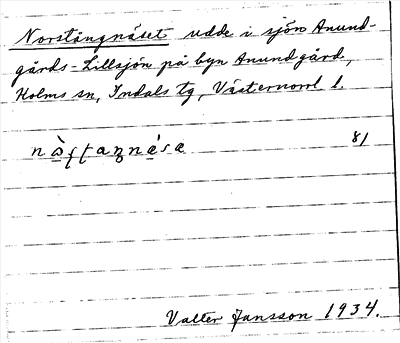 Norstångnäset udde i sjön Anund-
gårds-Lillsjön på byn Anundgård,
Holms sn, Indals tg, Västernorrl l.
81
Valter Jansson 1934.